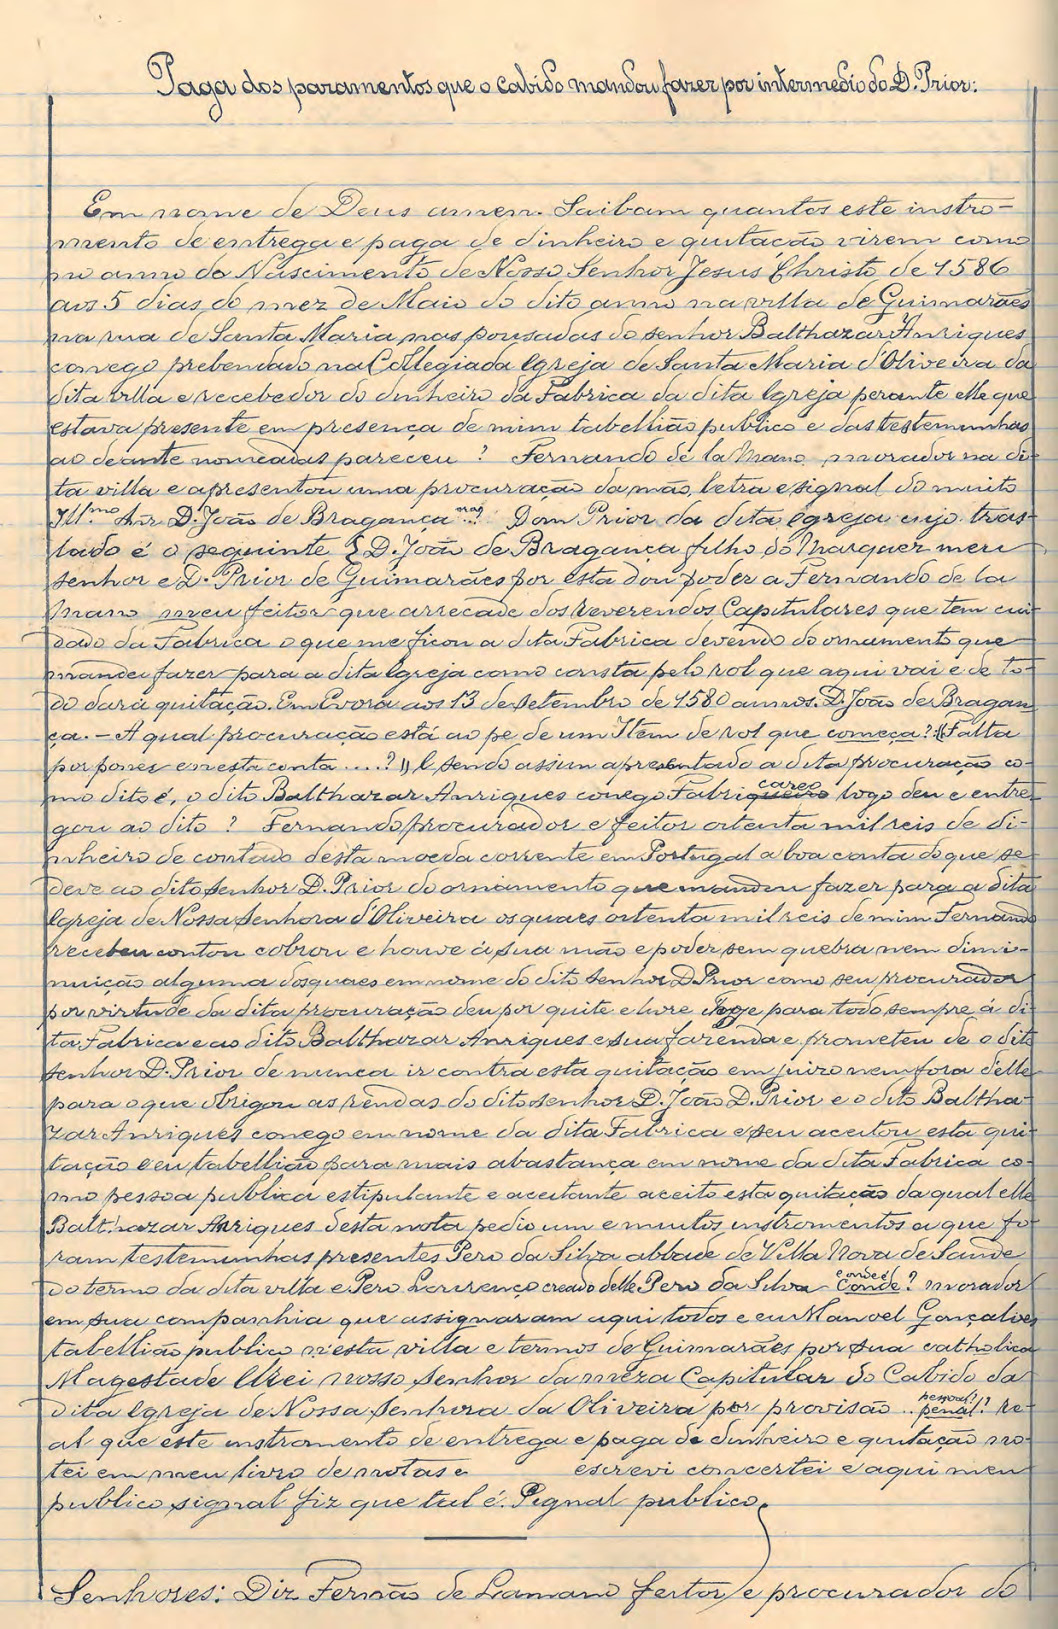 Paga dos paramentos que o cabido mandou fazer por intermedio do D. Prior:
Em nome de Deus amen. Saibam quantos este instro-
mento de entrega e paga de dinheiro e quitação virem como
no anno do Nascimento de Nosso Senhor Jesus Christo de 1586
aos 5 dias do mez de Maio do dito anno na villa de Guimarães
na rua de Santa Maria nas pousadas do senhor Balthazar Anriques
conego prebendado na Collegiada Igreja de Santa Maria d'Oliveira da
dita villa e recebedor do dinheiro da Fabrica da dita Igreja perante elle que
estava presente em presença de mim tabellião publico e das testemunhas
ao deante nomeadas pareceu ? Fernando de la Mano morador na di-
ta villa e apresentou uma procuração da mão, letra e signal do muito
Ill.mo Snr D. João de Bragança Dom Prior da dita Igreja cujo tras-
lado é o seguinte { D. João de Bragança filho do Marquez meu
senhor e D. Prior de Guimarães por esta dou poder a Fernando de la
Mano meu feitor que arrecade dos reverendos Capitulares que tem cui-
dado da Fabrica o que me ficou a dita Fabrica devendo do ornamento que
mandei fazer para a dita Igreja como consta pelo rol que aqui vai e de to-
do dará quitação. Em Evora aos 13 de setembro de 1580 annos. D. João de Bragan-
ça. — A qual procuração está ao pé de um Item de rol que começa? (( Falta
por pones en esta conta ....? )) E sendo assim apresentado a dita procuração co-
mo dito é, o dito Balthazar Anriques conego Fabriqueiro logo deu e entre-
gou ao dito ? Fernando procurador e feitor oitenta mil reis de di-
nheiro de contado desta moeda corrente em Portugal a boa conta do que se
deve ao dito senhor D. Prior do ornamento que mandou fazer para a dita
Igreja de Nossa Senhora d'Oliveira os quaes oitenta mil reis de mim Fernando
recebeu contou cobrou e houve á sua mão e poder sem quebra nem dimi-
nuição alguma dos quaes em nome do dito senhor D. Prior como seu procurador
por virtude da dita procuração deu por quite e livre d'hoje para todo sempre á di-
ta Fabrica e ao dito Balthazar Anriques e sua fazenda e prometeu de o dito
senhor D. Prior de nunca ir contra esta quitação em juizo nem fora d'elle
para o que obrigou as rendas do dito senhor D. João D. Prior e o dito Baltha-
zar Anriques conego em nome da dita Fabrica e seu aceitou esta qui-
tação e eu tabellião para mais abastança em nome da dita Fabrica co-
mo pessoa publica estipulante e aceitante aceito esta quitação da qual elle
Balthazar Anriques desta nota pedio um e muitos instromentos a que fo-
ram testemunhas presentes Pero da Silva abbade de Villa Nova de Sande
do termo da dita villa e Pero Lourenço creado delle Pero da Silva Conde? morador
em sua companhia que assignaram aqui todos e eu Manoel Gonçalves
tabellião publico n'esta villa e termos de Guimarães por sua catholica
Magestade Elrei nosso senhor da meza Capitular do Cabido da
dita Igreja de Nossa Senhora da Oliveira por provisão .. pessoal? penal? re-
al que este instromento de entrega e paga de dinheiro e quitação no-
tei em meu livro de notas e escrevi concertei e aqui meu
publico signal fiz que tal é. Signal publico.
Senhores: Diz Fernão de Lamano feitor e procurador do